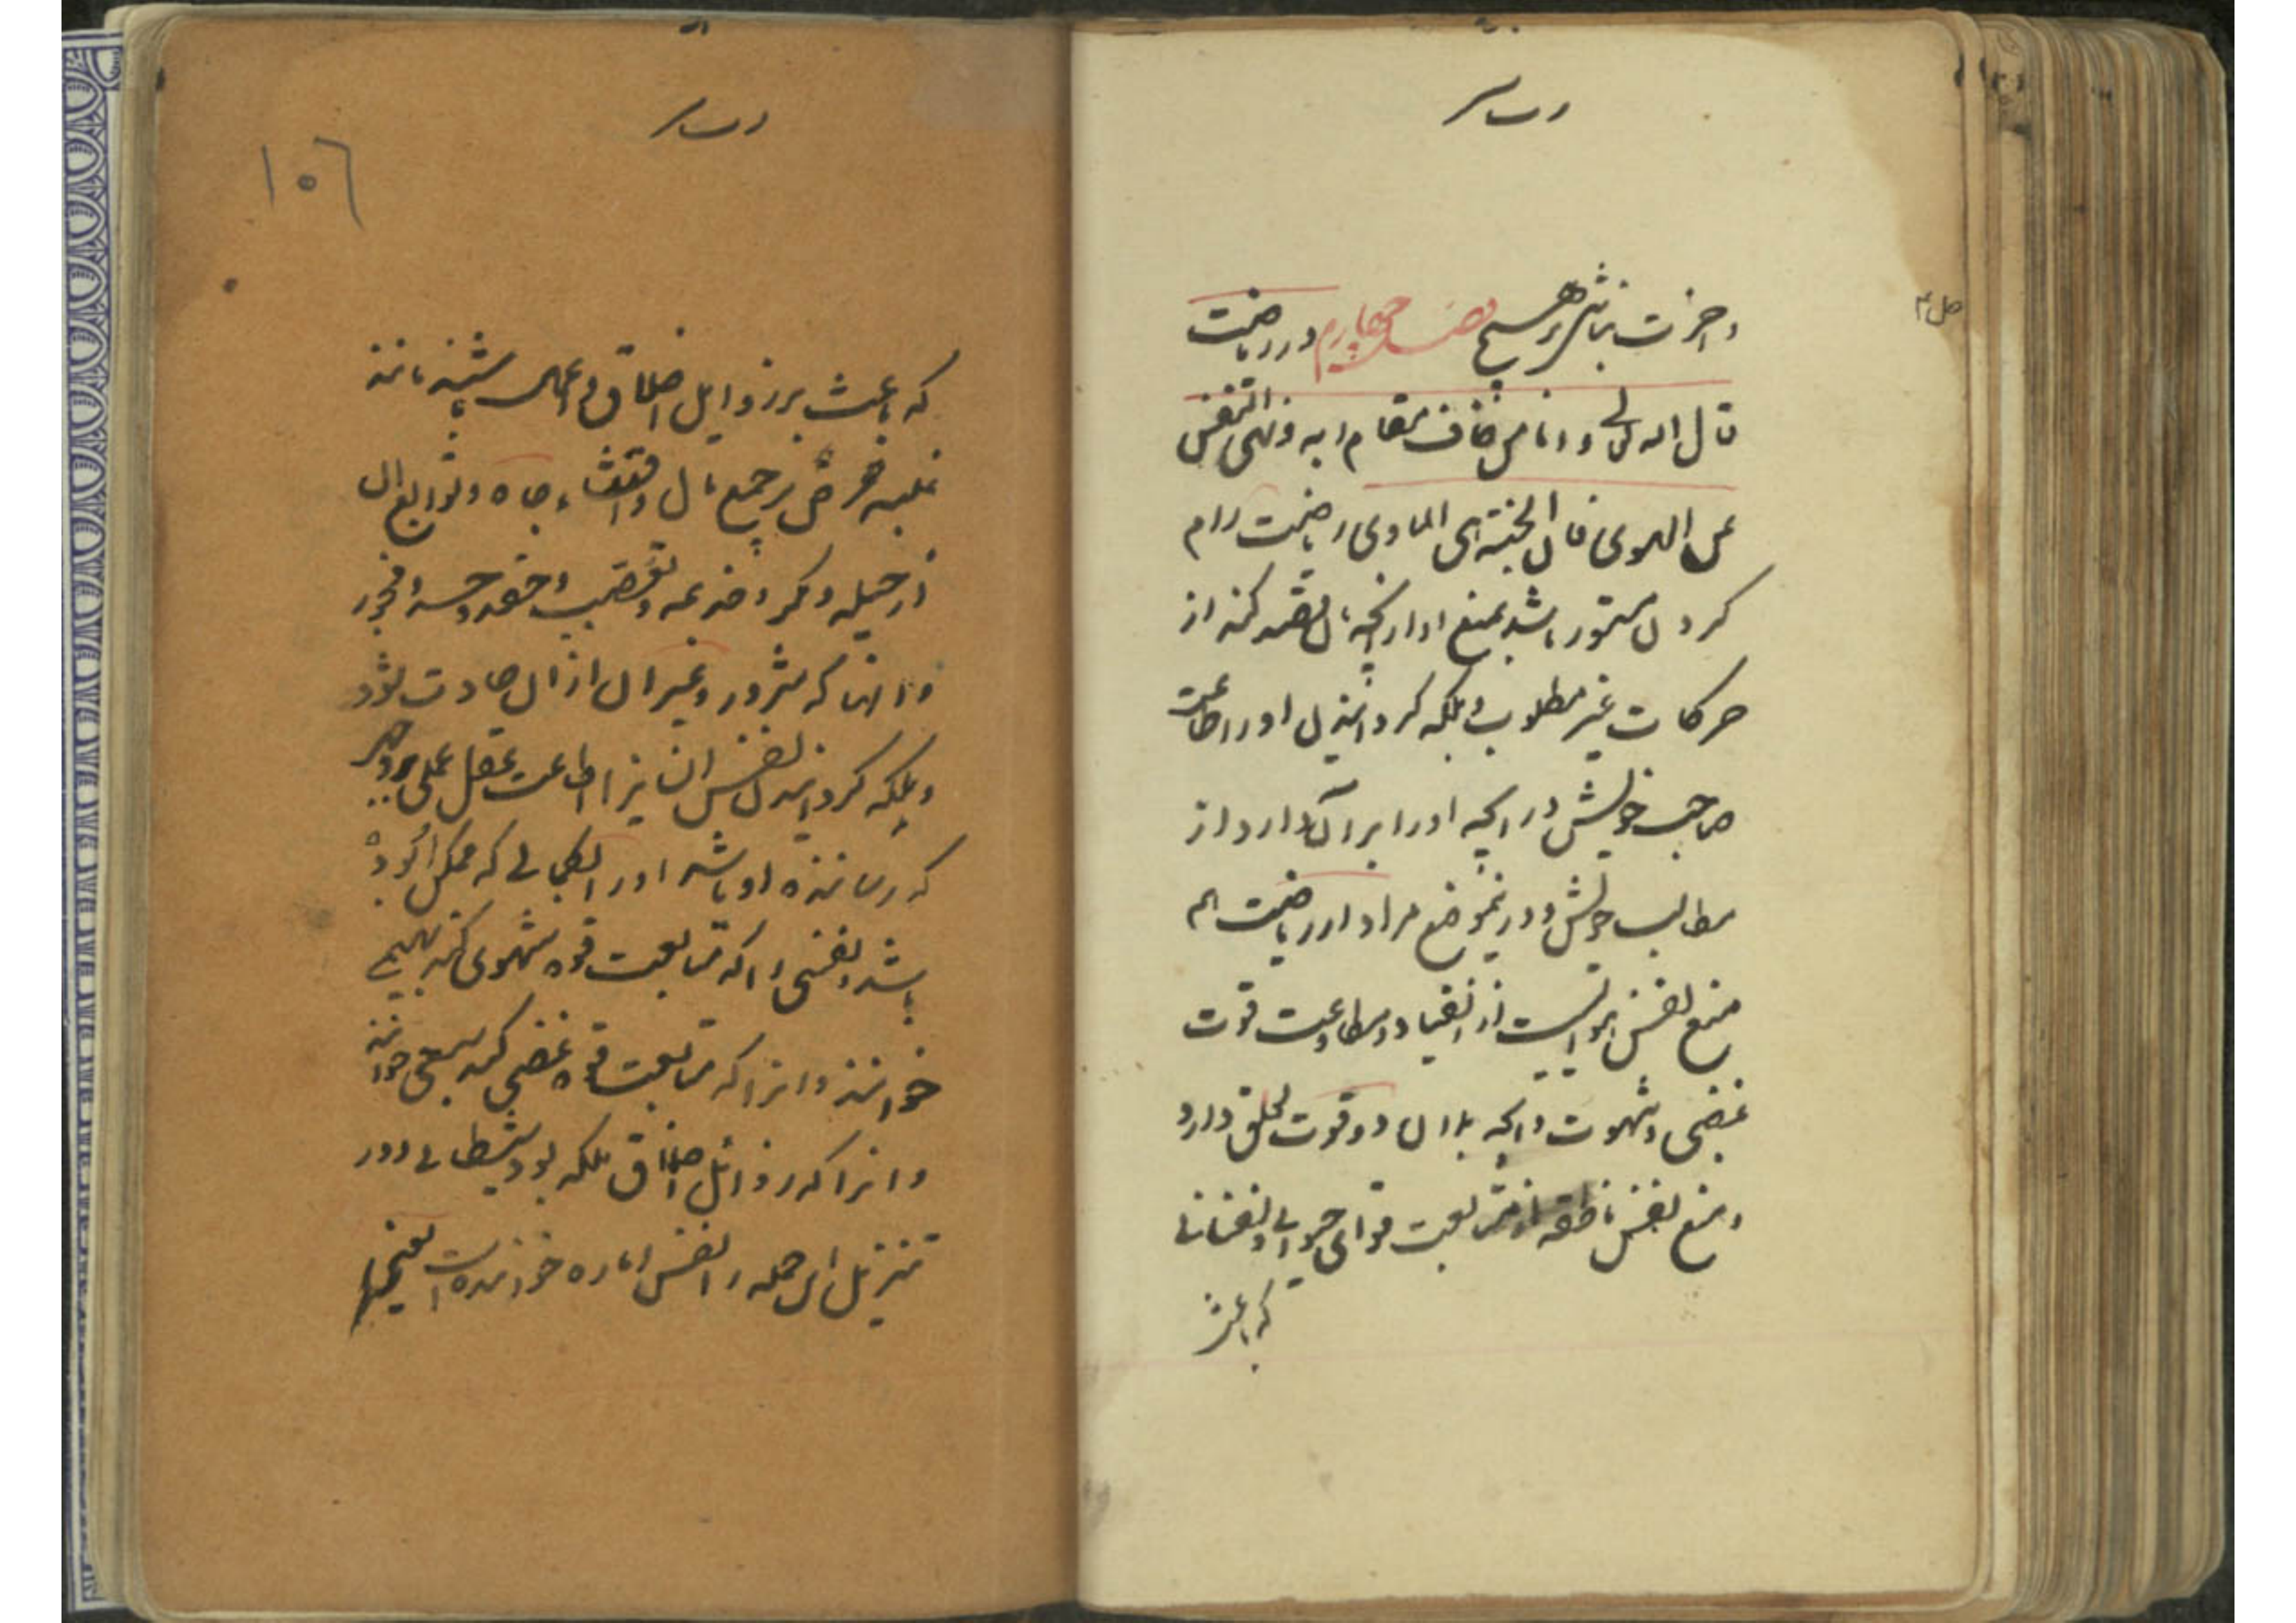 و آخرت نباشد هیچ فصل چهارم در ریاضت
قال الله تعالی و اما من خاف مقام ربه و نهی النفس
عن الهوی فان الجنة هی الماوی ریاضت رام
کردن ستور باشد بمنع او از آنچه قصد کند از
حرکات غیر مطلوب و ملکه گردانیدن او را اطاعت
صاحب خویش در آنچه او را بر آن دارد از
مطالب خویش و در این موضع مراد از ریاضت هم
منع نفس حیوانیست از انقیاد و مطاوعت قوت
غضبی و شهوت و آنچه بدان دو قوت تعلق دارد
و منع نفس ناطقه از متابعت قوای حیوانی و نفسانی
که باعث
۱۰۶
که باعث بر رذایل اخلاق و اعمال باشند مانند
غلبه حرص بر جمع مال و اقتناء جاه و توابع آن
از حیله و مکر و خدعه و تعصب و حقد و حسد و فجور
و آنها که شرور و غیر آن از آن حادث شود
و ملکه گردانیدن نفس انسانیرا اطاعت عقل عملی بر وجهی
که رساننده او باشد او را بکمالی که ممکن او بود
باشد و نفسی را که متابعت قوه شهوی کند بهیمی
خوانند و انرا که متابعت قوه غضبی کند سبعی خوانند
و انرا که رذائل اخلاق ملکه بود شیطانی و در
تنزیل این جمله را نفس اماره خوانده است یعنی